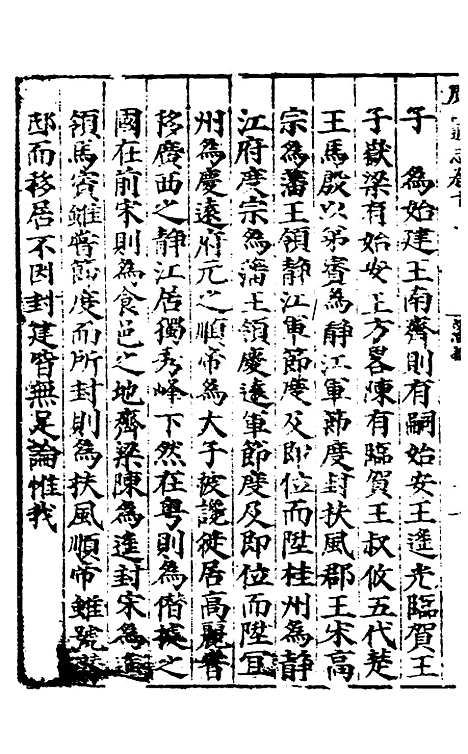 子　為始建王南齊則有嗣始安王遥光臨賀王
子嶽梁有始安王方畧陳有臨賀王叔攸五代楚
王馬殷以弟賓為靜江軍節度封扶風郡王宋高
宗為藩王領靜江軍節度及即位而陞桂州為靜
江府度宗為藩王領慶遠軍節度及即位而陞宜
州為慶遠府元之順帝為太子被讒徙居高麗嘗
移廣西之靜江居獨秀峰下然在粤則為僭㨿之
國在前宋則為食邑之地齊梁陳為遥封宋為遥
領馬賓雖嘗節度而所封則為扶風順帝雖號
邸而移居不因封建皆無足論惟我